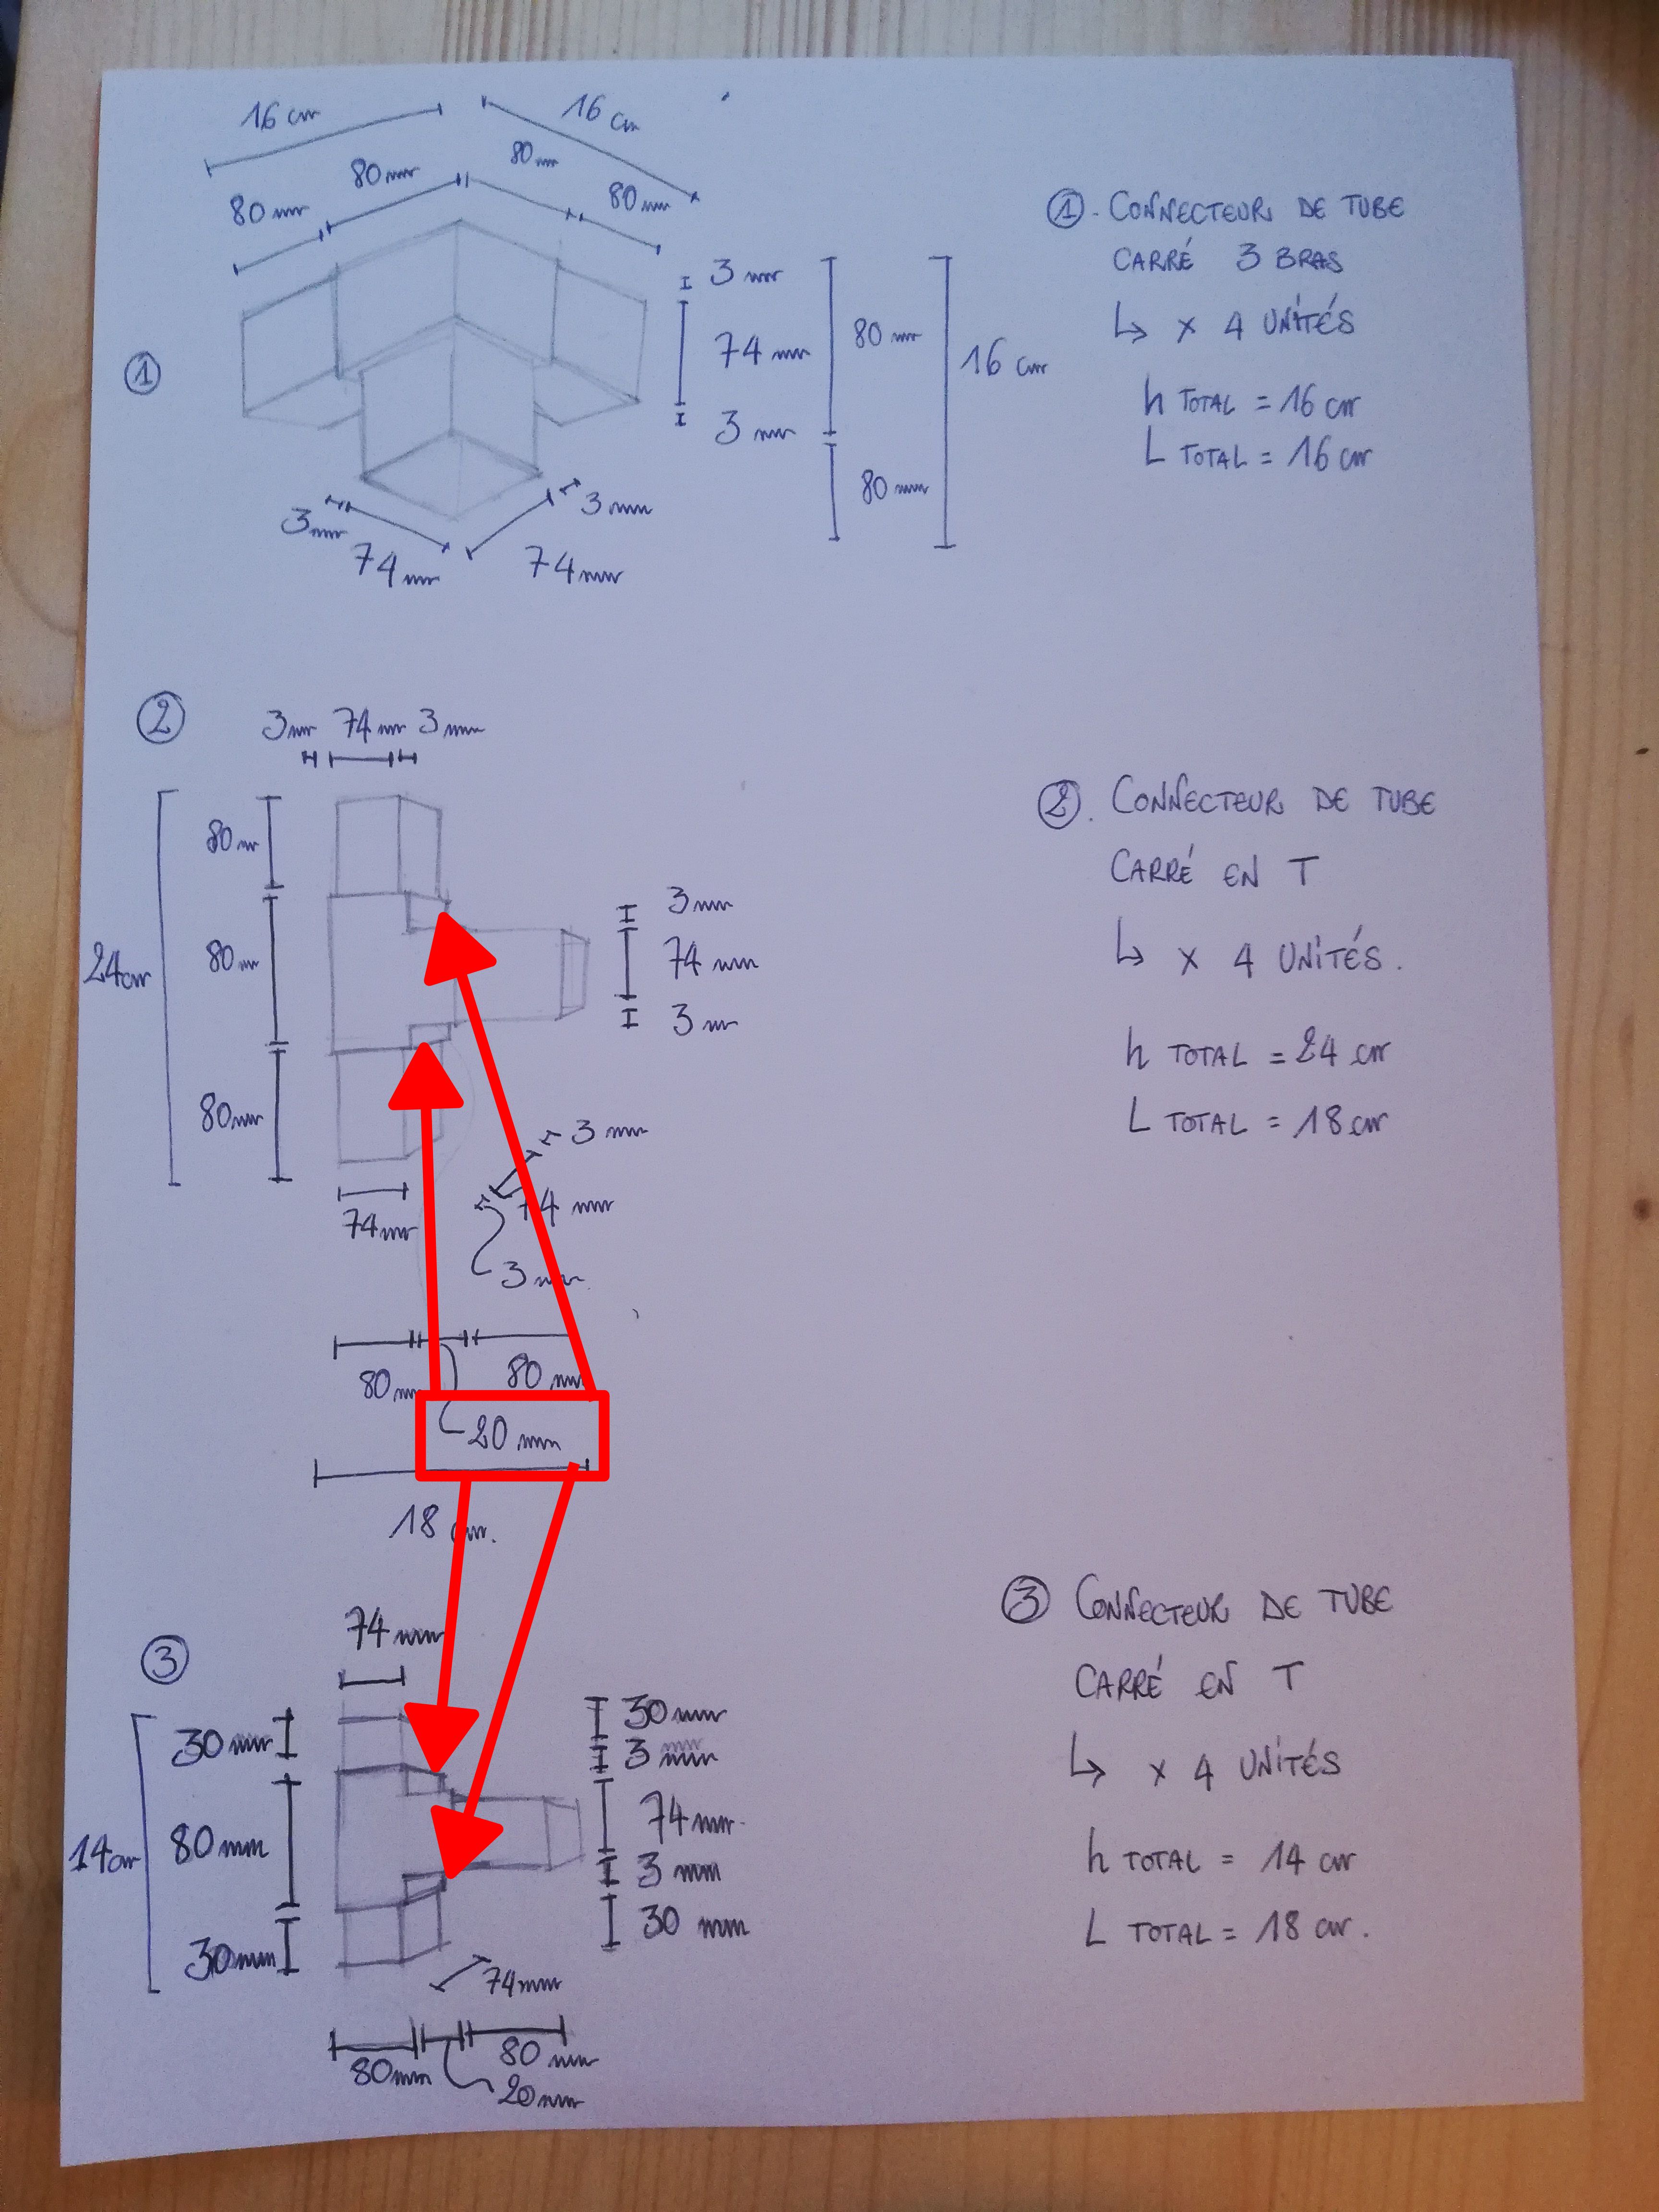 16 cm
16 cm
80 mm
80 mm
80 mm
80 mm
① . CONNECTEUR DE TUBE
CARRÉ 3 BRAS
↳ x 4 UNITÉS
h TOTAL = 16 cm
L TOTAL = 16 cm
①
3 mm
74 mm
3 mm
80 mm
80 mm
16 cm
3 mm
74 mm
3 mm
74 mm
②
3 mm 74 mm 3 mm
24 cm
80 mm
80 mm
80 mm
3 mm
74 mm
3 mm
② . CONNECTEUR DE TUBE
CARRÉ EN T
↳ x 4 UNITÉS.
h TOTAL = 24 cm
L TOTAL = 18 cm
74 mm
3 mm
74 mm
3 mm
80 mm
80 mm
20 mm
18 cm.
③
74 mm
14 cm
30 mm
80 mm
30 mm
30 mm
3 mm
74 mm
3 mm
30 mm
③ CONNECTEUR DE TUBE
CARRÉ EN T
↳ x 4 UNITÉS
h TOTAL = 14 cm
L TOTAL = 18 cm.
74 mm
80 mm
80 mm
20 mm